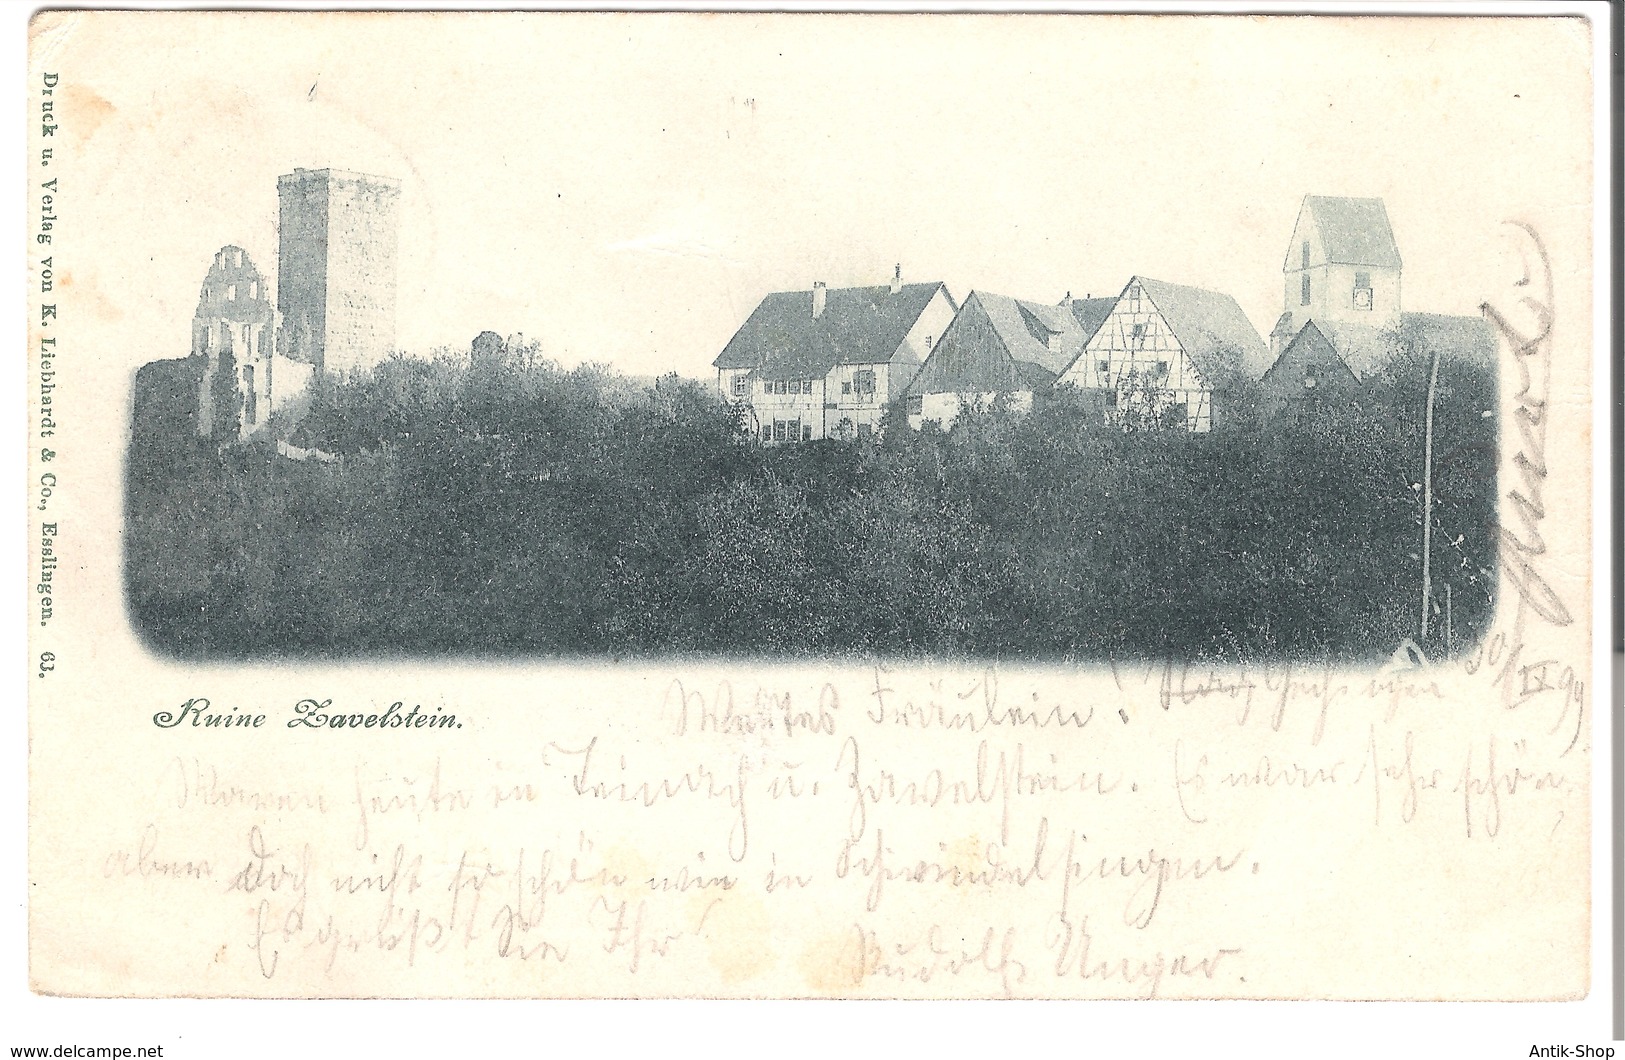 Druck u. Verlag von K. Liebhardt & Co., Esslingen. 63.
Ruine Zavelstein.
30/IX 99
Wertes Fräulein! Gechingen
Waren heute in Teinach u. Zavelstein. Es war sehr schön,
aber doch nicht so schön wie in Schwindelsingen.
Es grüßt Sie Ihr Rudolf Unger.
www.delcampe.net
Antik-Shop